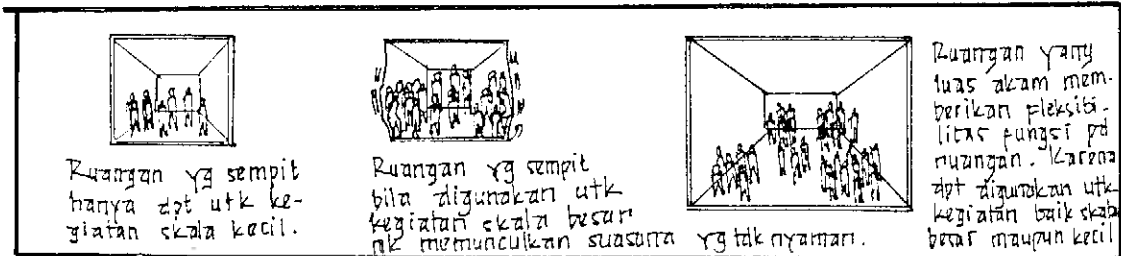 Ruangan yg sempit
hanya dpt utk ke-
giatan skala kecil.
Ruangan yg sempit
bila digunakan utk
kegiatan skala besar
ak memunculkan suasana yg tdk nyaman.
Ruangan yang
luas akam mem-
berikan fleksibi-
litas fungsi pd
ruangan. Karena
dpt digunakan utk
kegiatan baik skala
besar maupun kecil